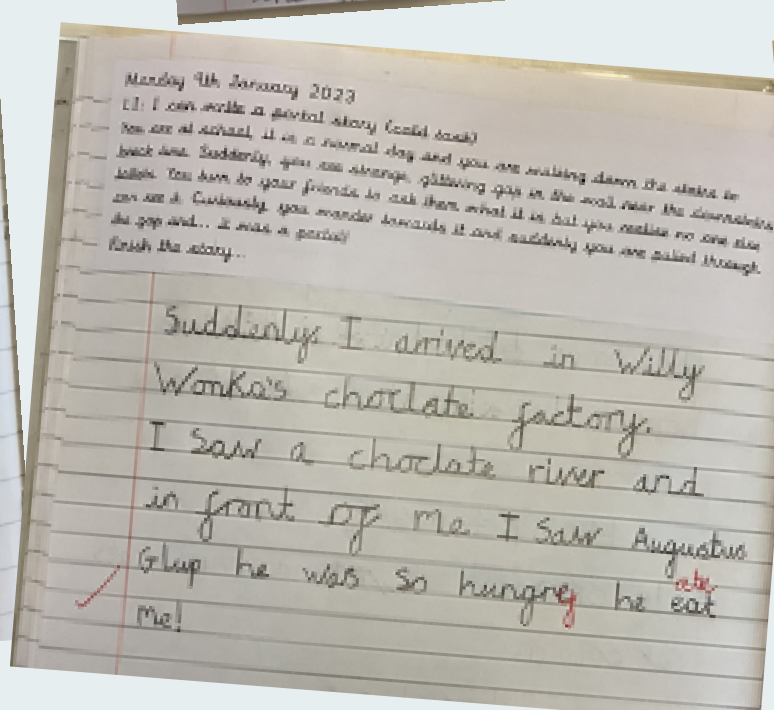 Monday 9th January 2023
LI: I can write a portal story (cold task)
You are at school, it is a normal day and you are walking down the stairs to
lunch time. Suddenly, you see strange, glittering gap in the wall near the downstairs
toilets. You turn to your friends to ask them what it is but you realise no one else
can see it. Curiously, you wander towards it and suddenly you are pulled through
the gap and... It was a portal!
Finish the story...
Suddenlys I arrived in Willy
Wonka's choclate factory.
I saw a choclate river and
in front of me I saw Augustus
Glup he was so hungrey he eat
ate
me!